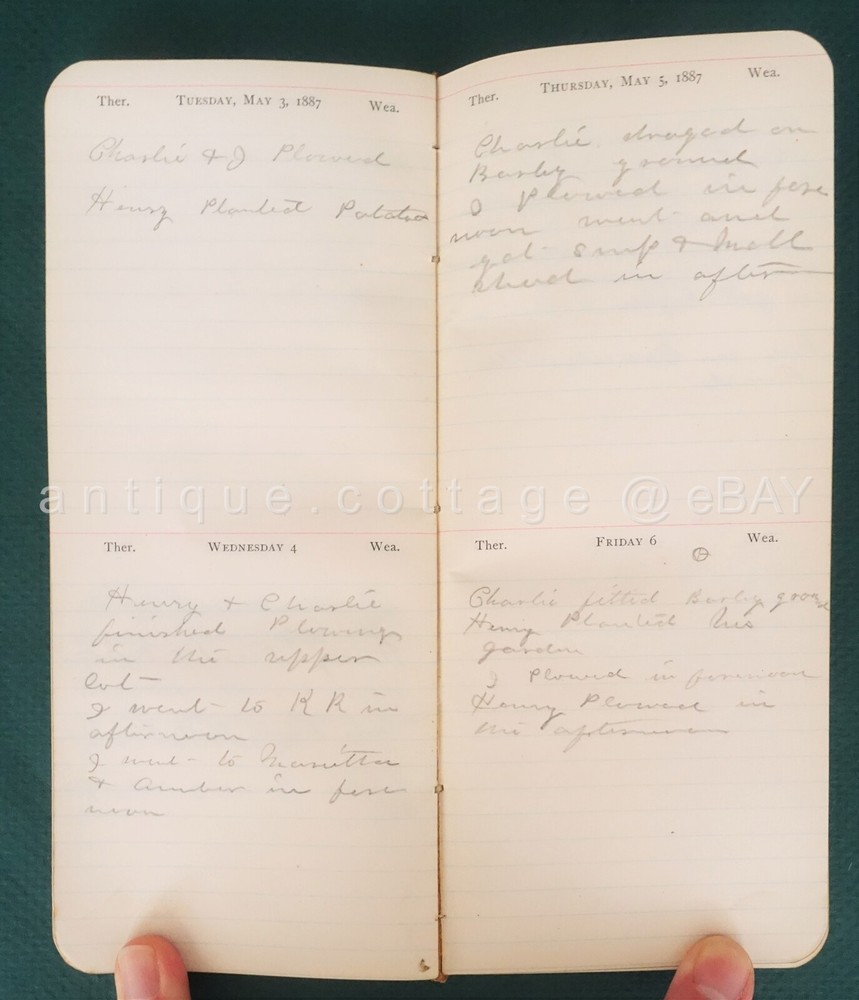 Ther. Tuesday, May 3, 1887 Wea.
Charlie & I Plowed
Henry Planted Potatoes
Ther. Wednesday 4 Wea.
Henry & Charlie
finished Plowing
in the upper
Lot
I went to R R in
afternoon
I went to Marietta
& Amber in fore
noon
Ther. Thursday, May 5, 1887 Wea.
Charlie draged on
Barley ground
I Plowed in fore
noon went and
got & Moll
shod in after
Ther. Friday 6 Wea.
Charlie fitted Barley ground
Henry Planted his
garden
I Plowed in forenoon
Henry Plowed in
the afternoon
antique.cottage @ eBAY